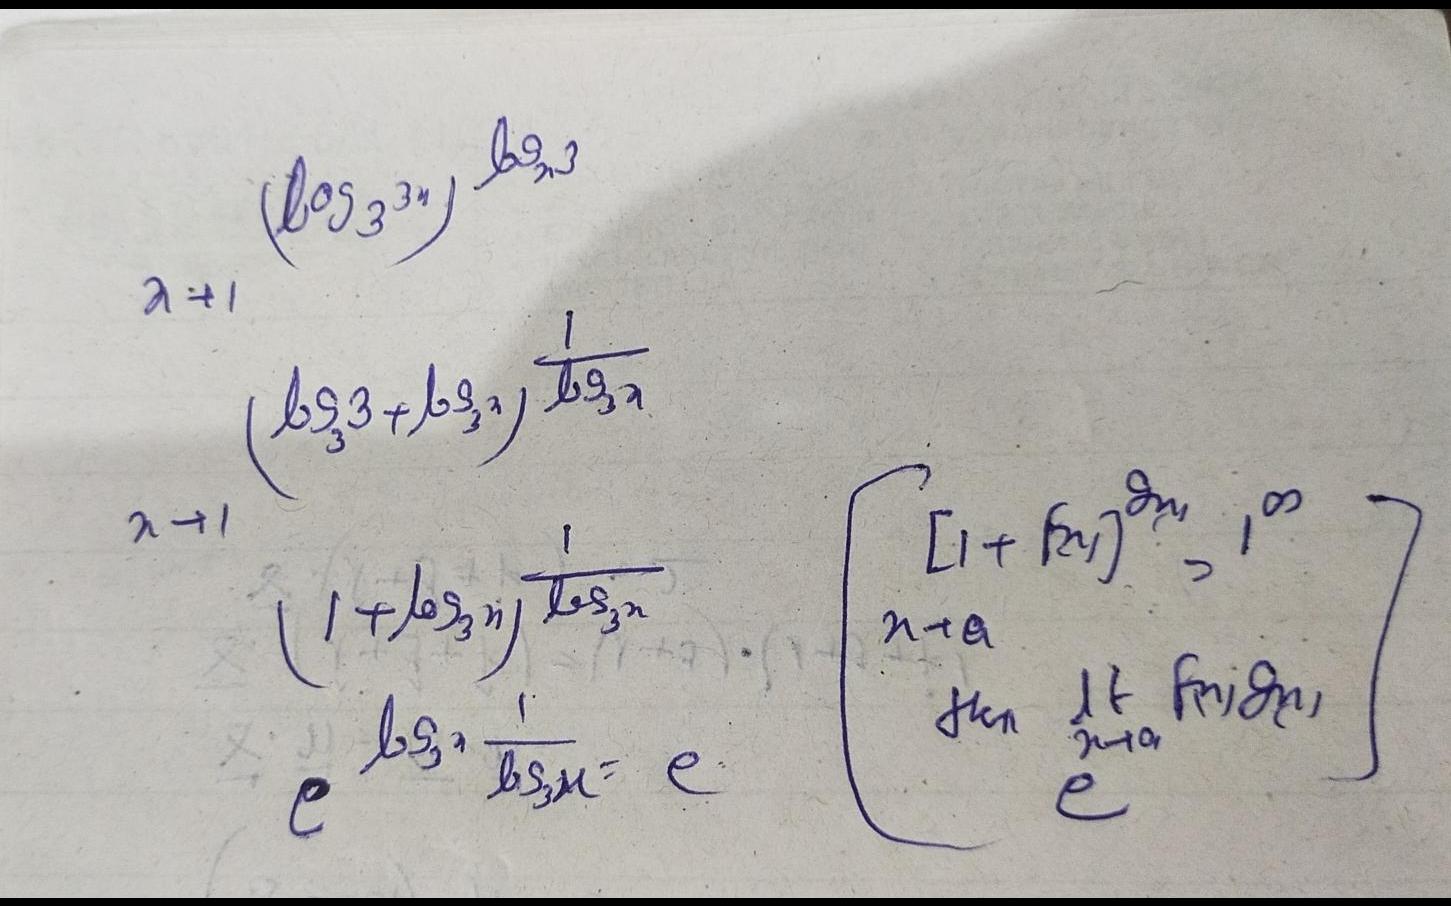 (log₃ 3x)^(log_x 3)
x→1
(log₃3 + log₃x)^(1/log₃x)
x→1
(1 + log₃x)^(1/log₃x)
e^(log₃x 1/log₃x) = e
[1 + f(x)]^g(x) = 1^∞
x→a
then lt f(x)g(x)
x→a
e